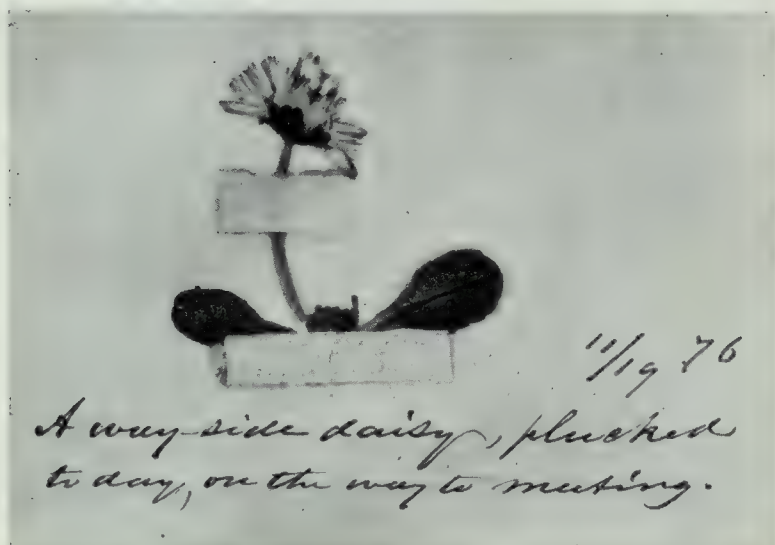 11/19 76
A way-side daisy, plucked
to day, on the way to meeting.